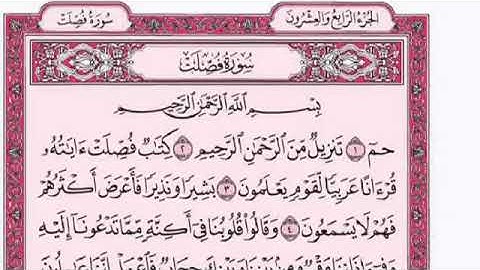 سُورَةُ فُصِّلَتْ
الجُزْءُ الرَّابِعُ وَالعِشْرُونَ
سُورَةُ فُصِّلَتْ
بِسْمِ اللَّهِ الرَّحْمَٰنِ الرَّحِيمِ
حمٓ ١ تَنزِيلٌ مِّنَ الرَّحْمَٰنِ الرَّحِيمِ ٢ كِتَابٌ فُصِّلَتْ ءَايَاتُهُ
قُرْءَانًا عَرَبِيًّا لِّقَوْمٍ يَعْلَمُونَ ٣ بَشِيرًا وَنَذِيرًا فَأَعْرَضَ أَكْثَرُهُمْ
فَهُمْ لَا يَسْمَعُونَ ٤ وَقَالُوا قُلُوبُنَا فِي أَكِنَّةٍ مِّمَّا تَدْعُونَا إِلَيْهِ